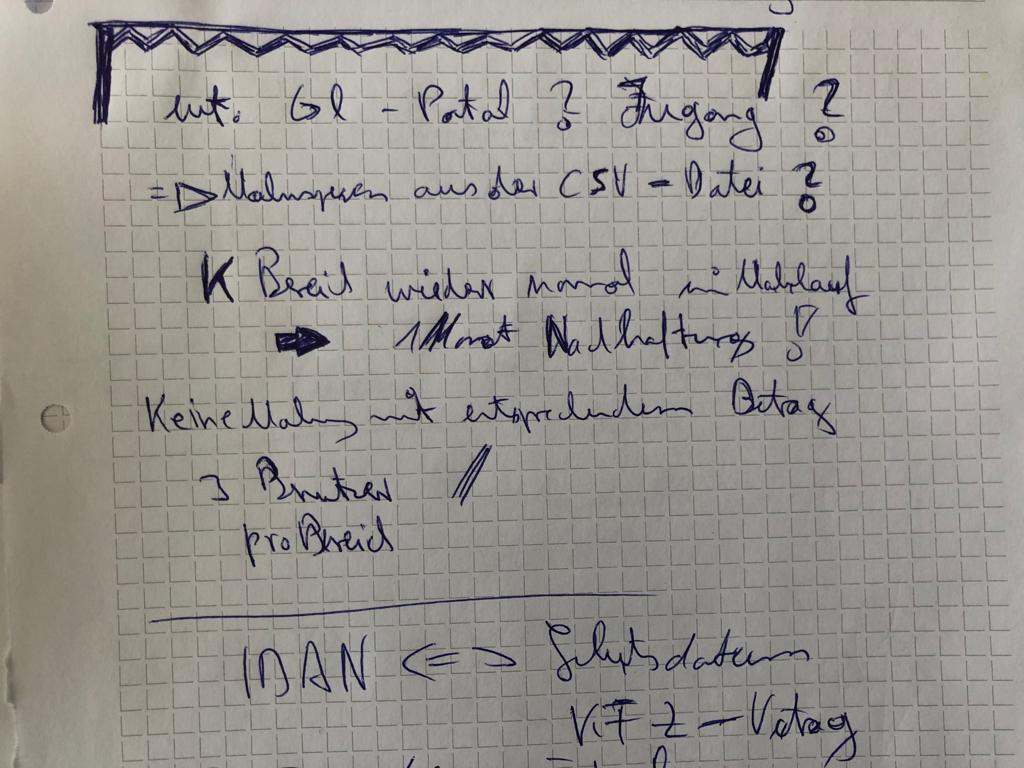 int. GL - Portal ? Zugang ?
=> Mahnsperren aus der CSV - Datei ?
K Bereich wieder normal im Mahnlauf
➡ 1 Monat Nachhaftung !
Keine Mahnung mit entsprechendem Betrag
3 Benutzer //
pro Bereich
IDAN <=> Geburtsdatum
KFZ - Vertrag